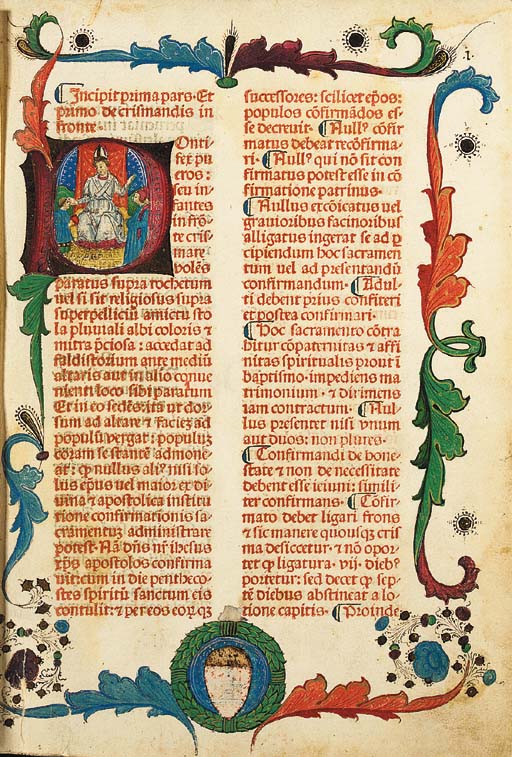 Incipit prima pars· Et
primo de crismandis in
fronte
Ponti
fex pu
eros:
seu in
fantes
in frō
te cris
mare
volēs
paratus supra rochetum
vel si sit religiosus supra
superpelliciū amictu sto
la pluviali albi coloris ⁊
mitra p̄ciosa: accedat ad
faldistorium ante mediū
altaris aut in alio cōnve
nienti loco sibi paratum
Et in eo sedēs: ita ut dor
sum ad altare ⁊ faciē ad
populū vergat: populuꝫ
coram se stantē admone
at: ꝙ nullus aliꝰ nisi so
lus ep̄us vel maior ex di
vina ⁊ apostolica institu
tione confirmationis sa
cramentuꝫ administrare
potest· Nā dn̄s nr̄ ihesus
xp̄s apostolos confirma
vit cum in die penthe co
stes spiritū sanctum eis
contulit: ⁊ per eos eorꝫ qꝫ
successores: scilicet ep̄os:
populos cōfirmādos es
se decreuit· Nullꝰ cōfir
matus debeat recōfirma
ri· Nullꝰ qui nō sit con
firmatus potest esse in cō
firmatione patrinus·
Nullus excōicatus vel
gravioribus facinoribus
alligatus ingerat se ad p
cipiendum hoc sacramen
tum vel ad presentandū
confirmandum· Adul
ti debent prius confiteri
et postea confirmari·
Hoc sacramento cōtra
hitur cōpaternitas ⁊ affi
nitas spiritualis prout i
baptismo· impediens ma
trimonium· ⁊ dirimens
iam contractum· Nul
lus presentet nisi vnum
aut duos: non plures·
Confirmandi de hone
state ⁊ non de necessitate
debent esse ieiuni: simili
ter confirmans· Cōfir
mato debet ligari frons
⁊ sic manere quousqꝫ cris
ma desiccetur· ⁊ nō opor
tet ꝙ ligatura· vij· diebꝰ
portetur: sed decet ꝙ sep
tē diebus abstineat a lo
tione capitis· Proinde